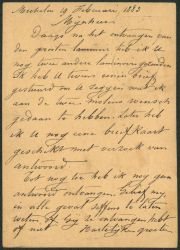 Mechelen 19 Februari, 1883
Mijnheer
Daags na het ontvangen van
den prenten heb ik U
nog twee andere gezonden
Ik heb U tevens eenen brief
gestuurd om U zeggen wat ik
aan de twee wensch
gedaan te hebben. Later heb
ik U nog eene briefkaart
geschikt met verzoek van
antwoord
Tot nog toe heb ik nog geen
antwoord ontvangen. Gelief mij
in alle geval iffens te laten
weten of Gij ze ontvangen hebt
of niet Hartelijken groeten